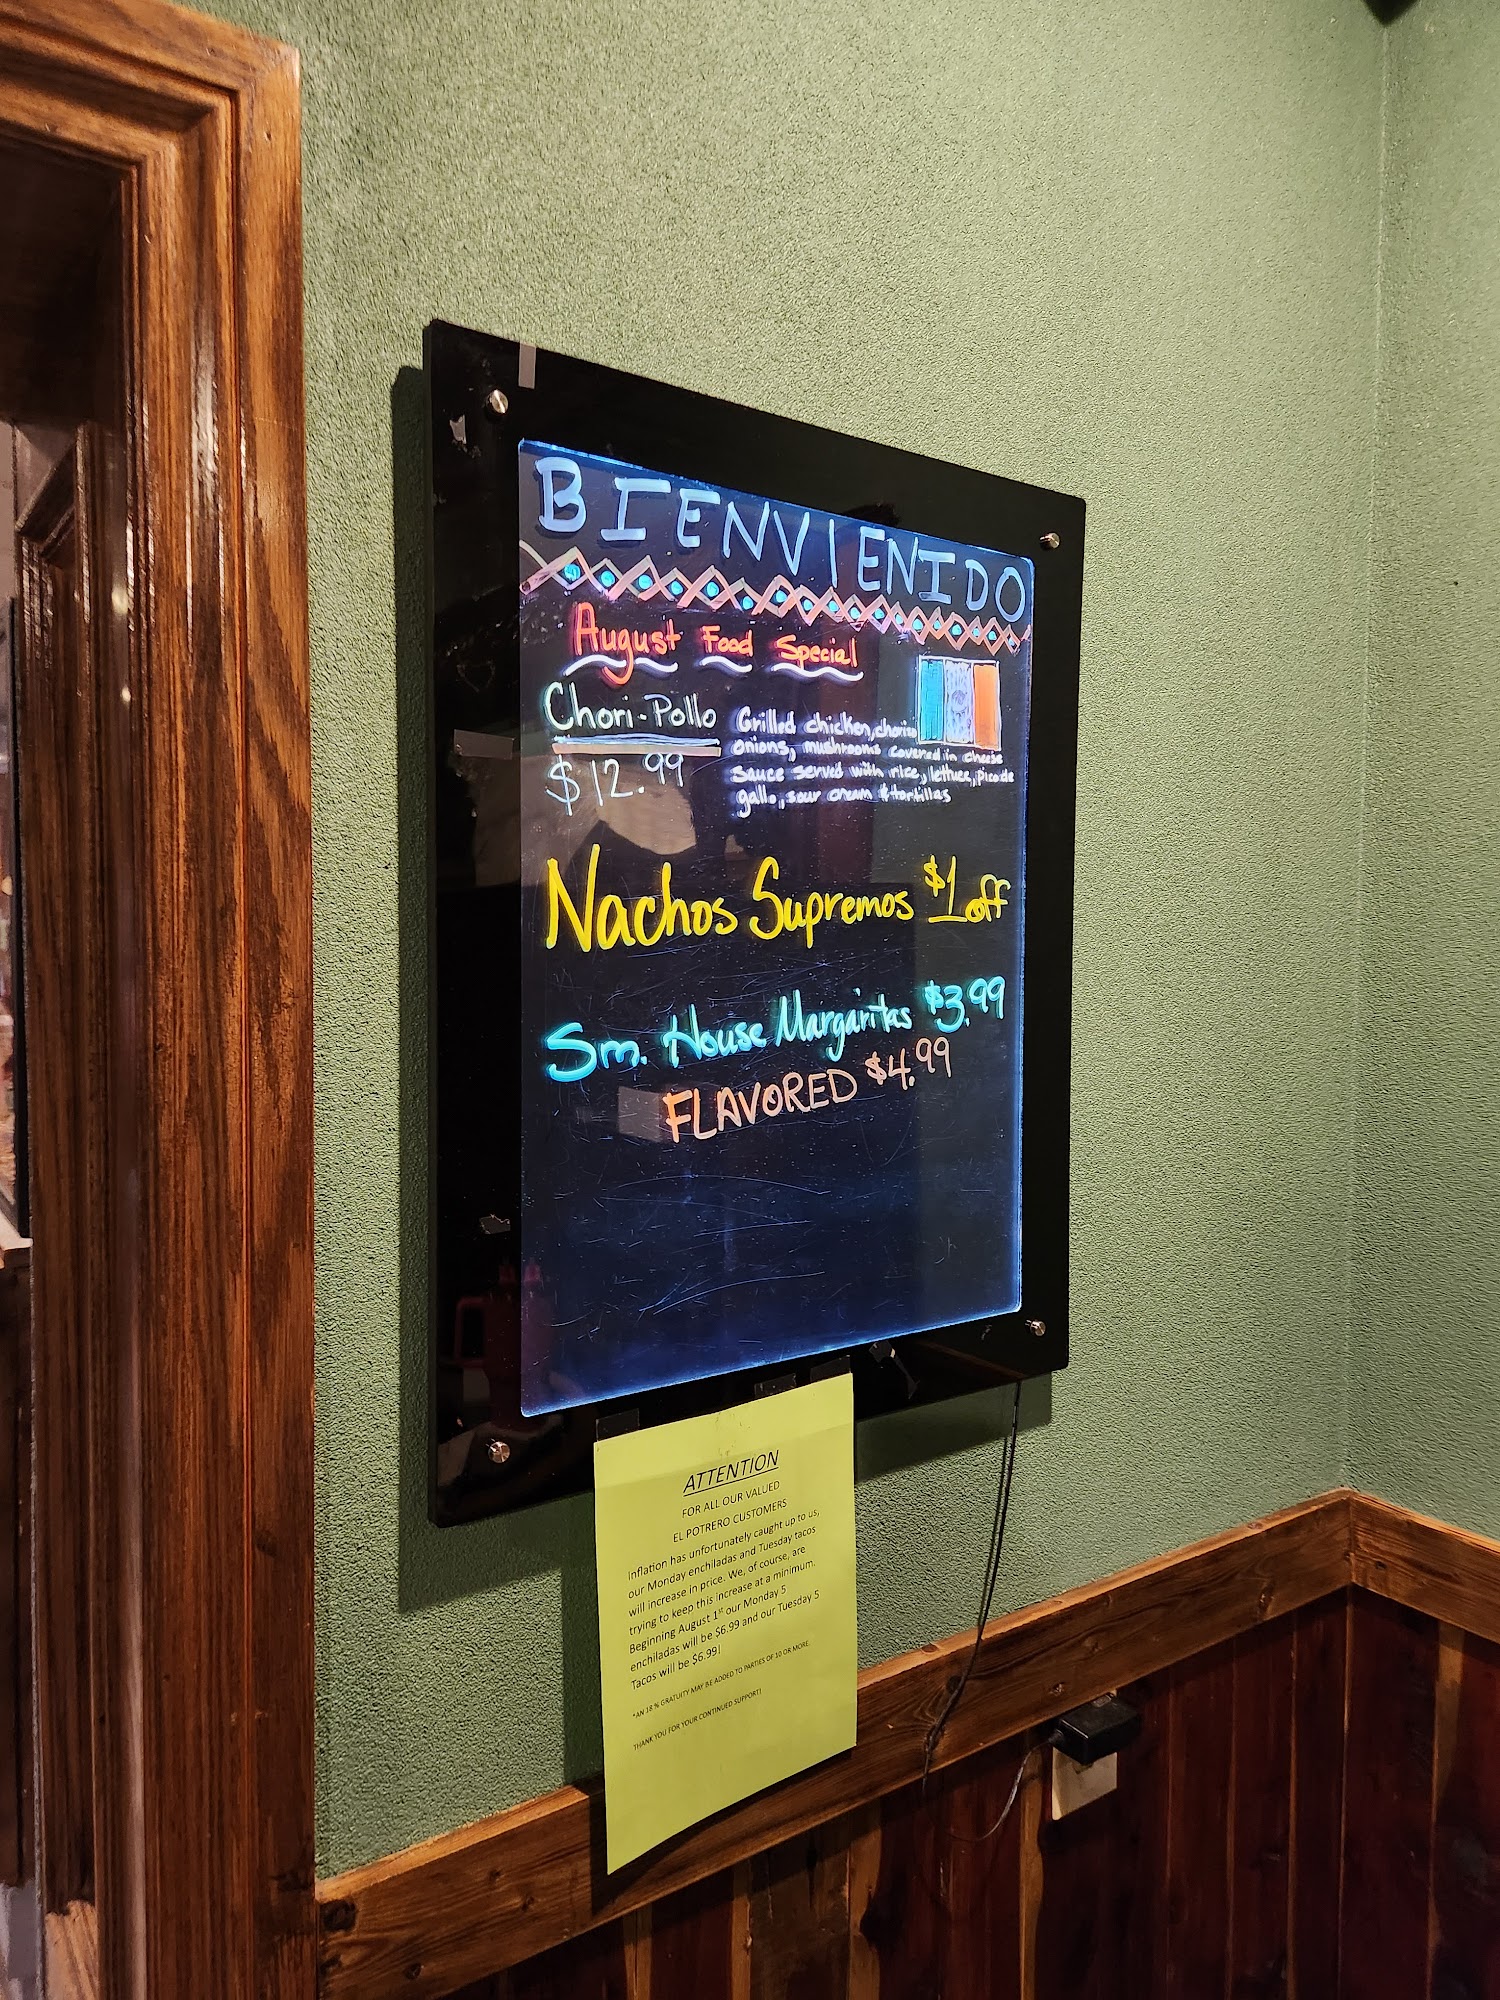 BIENVIENIDO
August Food Special
Chori-Pollo
$12.99
Grilled chicken, chorizo
onions, mushrooms covered in cheese
sauce served with rice, lettuce, pico de
gallo, sour cream & tortillas
Nachos Supremos $1 off
Sm. House Margaritas $3.99
FLAVORED $4.99
ATTENTION
FOR ALL OUR VALUED
EL POTRERO CUSTOMERS
Inflation has unfortunately caught up to us,
our Monday enchiladas and Tuesday tacos
will increase in price. We, of course, are
trying to keep this increase at a minimum.
Beginning August 1st our Monday 5
enchiladas will be $6.99 and our Tuesday 5
Tacos will be $6.99!
*AN 18 % GRATUITY MAY BE ADDED TO PARTIES OF 10 OR MORE.
THANK YOU FOR YOUR CONTINUED SUPPORT!